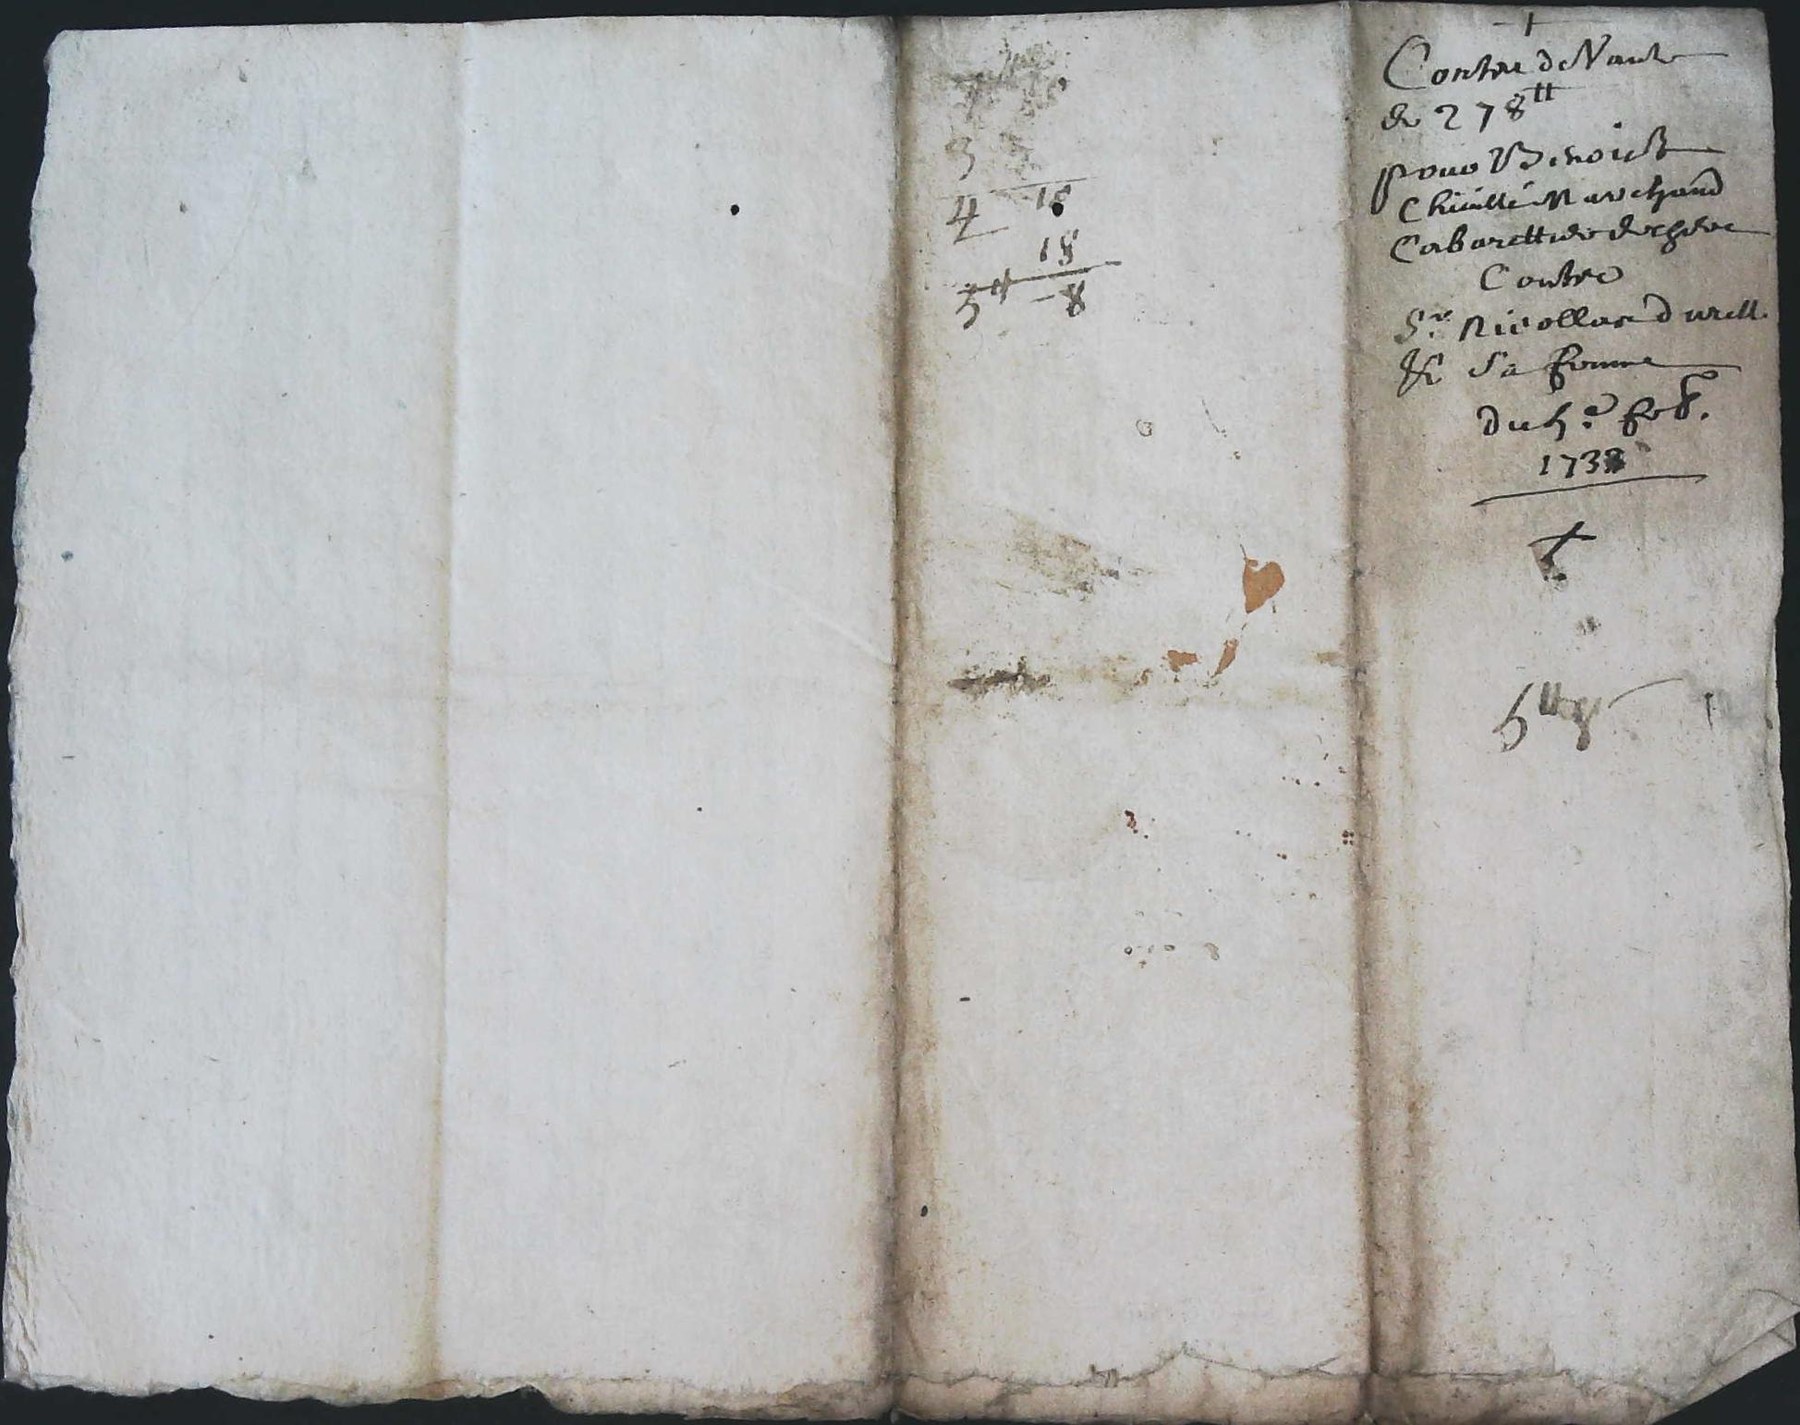 3
4 18
18
5ᵗᵗ - 8
+
Contra de Vante
de 278ᵗᵗ
pour Benoict
Chieullé Marchand
Cabarettier
Contre
Sʳ Nicollas Durell
& sa femme
du 5ᵉ feb.
173
5ᵗᵗ 8